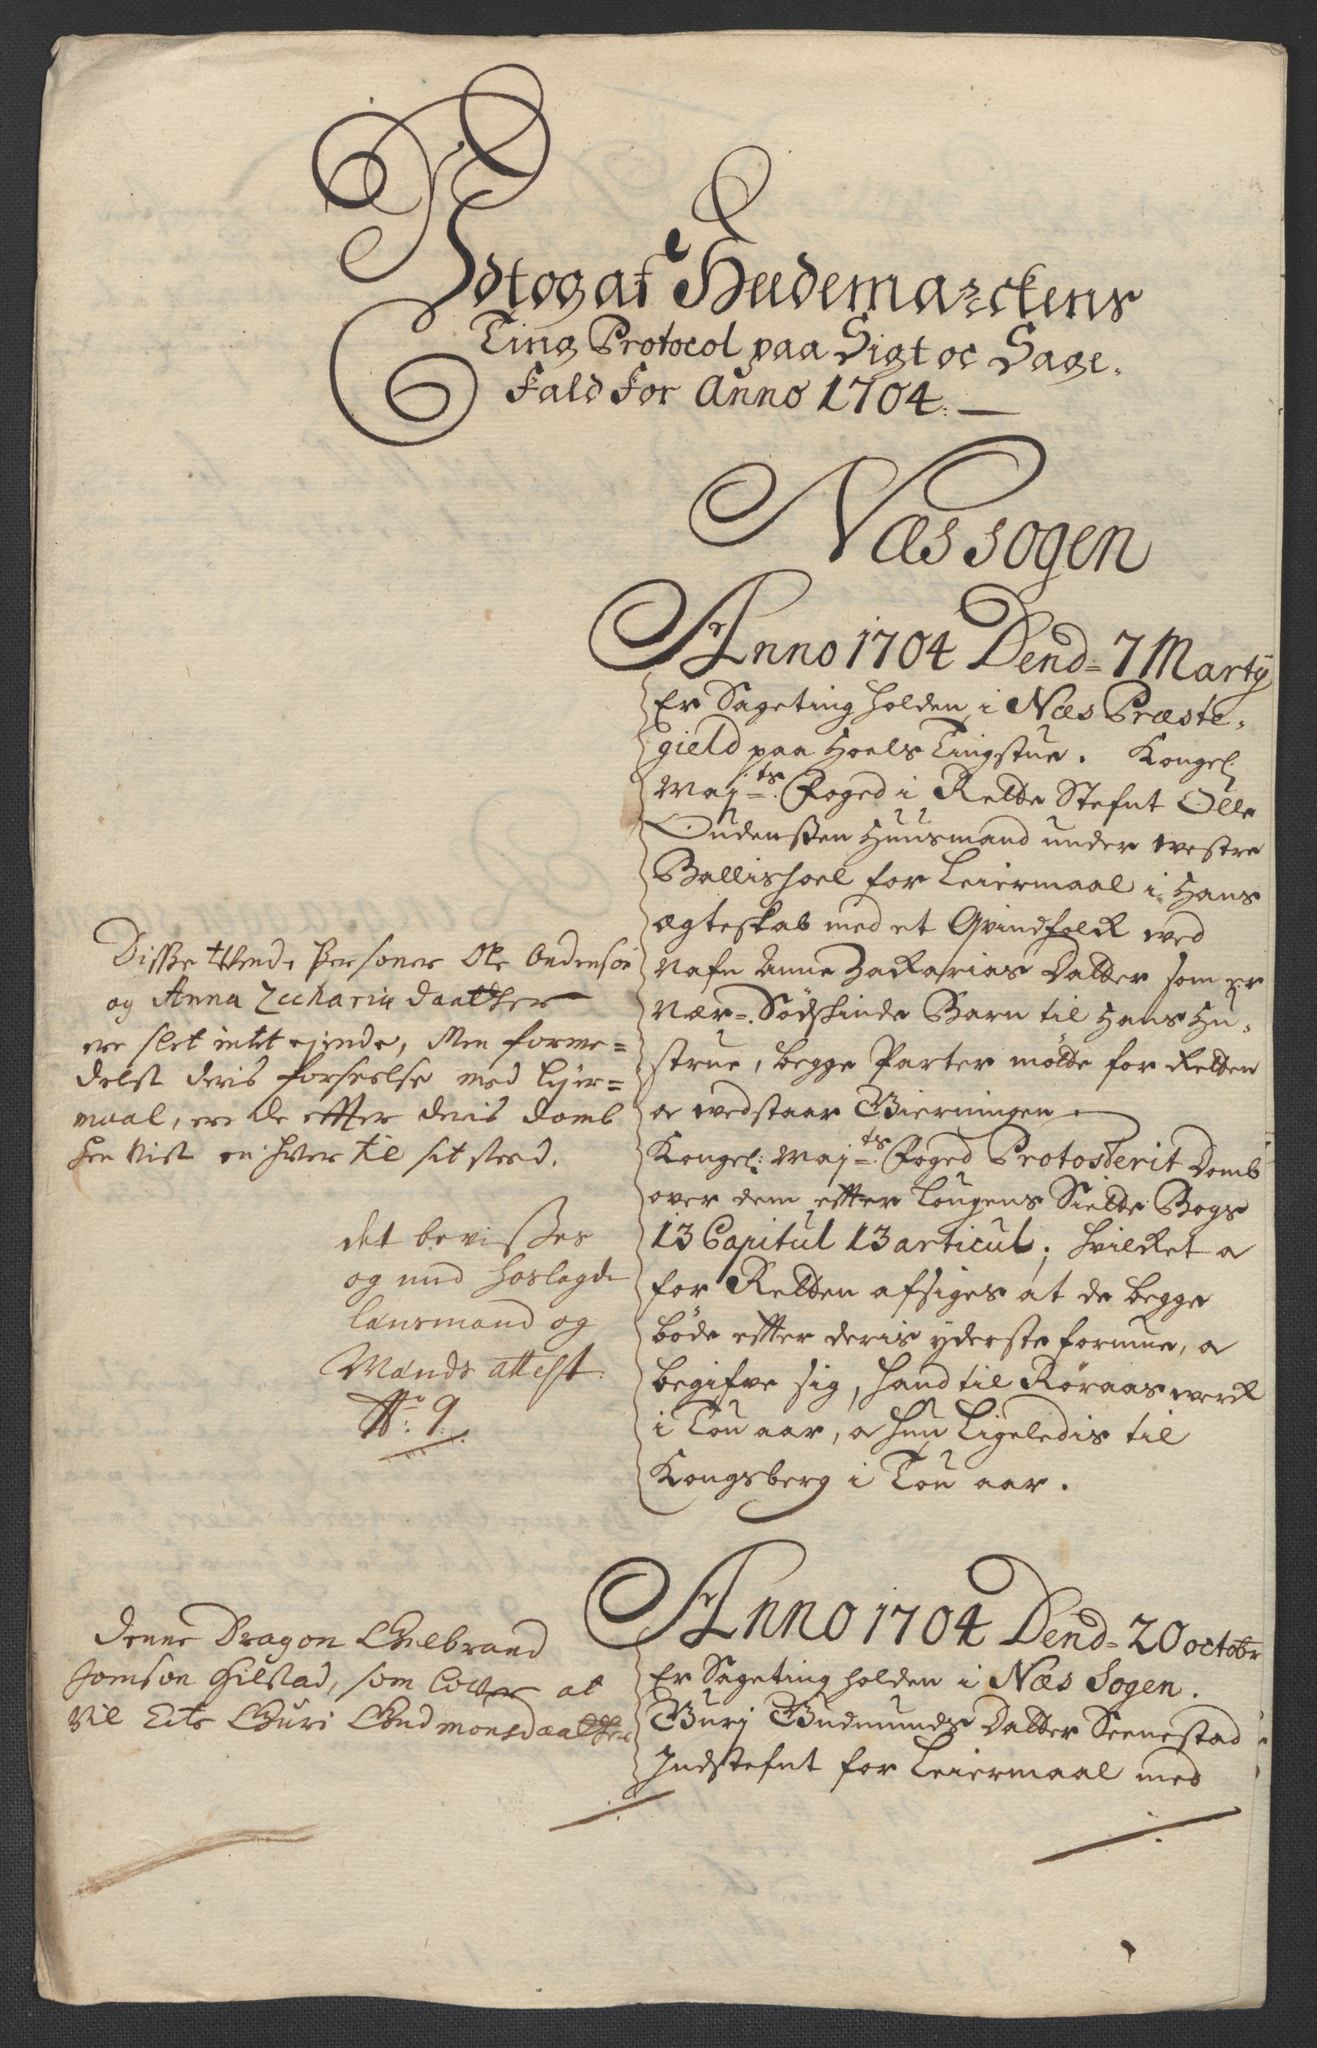 Udtog af Hedemarckens
Ting Protocol paa Sigt oc Sage-
fald for Anno 1704.
Næs sogen
Anno 1704 Dend 7 Martij
Er Sageting holden i Næs Præste-
gield paa Hoels Tingstue. Kongel:
Maj:ts Foged i Rette Stefnt Olle
Oudenssen Huusmand under westre
Ballishoel for Leiermaal i Hans
ægteskab med et Qvindfolck wed
Nafn Anne Zackarias Datter som er
Nær- Sødskinde Barn til Hans Hu-
strue, begge Parter møtte for Retten
oc wedstaar Gierningen
Kongel: Maj:ts Foged Protosterit Domb
over dem effter Lougens Siette Bogs
13 Capitul 13 articul; hvilket oc
for Retten afsiges at de begge
bøde effter deris yderste formue, oc
begifve sig, hand til Røraas werck
i Tou aar, oc hun Ligeledis til
Kongsberg i Tou aar.
Disse tvende Personer Ole Andensøn
og Anna Zecharia daatter
ere slet intet ejende, Men forme-
delst deris forseelse med Lejer-
maal, ere de effter deris domb
hen vist en hver til sit sted.
det bevisses
og med hoslagde
lansmand og
Mands attest.
No: 9
Anno 1704 Dend 20 octobr
Er Sageting holden i Næs Sogen.
Gurj Gudmunds Datter Seenestad
Indstefnt for Leiermaal med
denne Dragon Gulbrand
Jomson Gilstad, som lover at
vil Ecte Guri Gudmonsdaatter